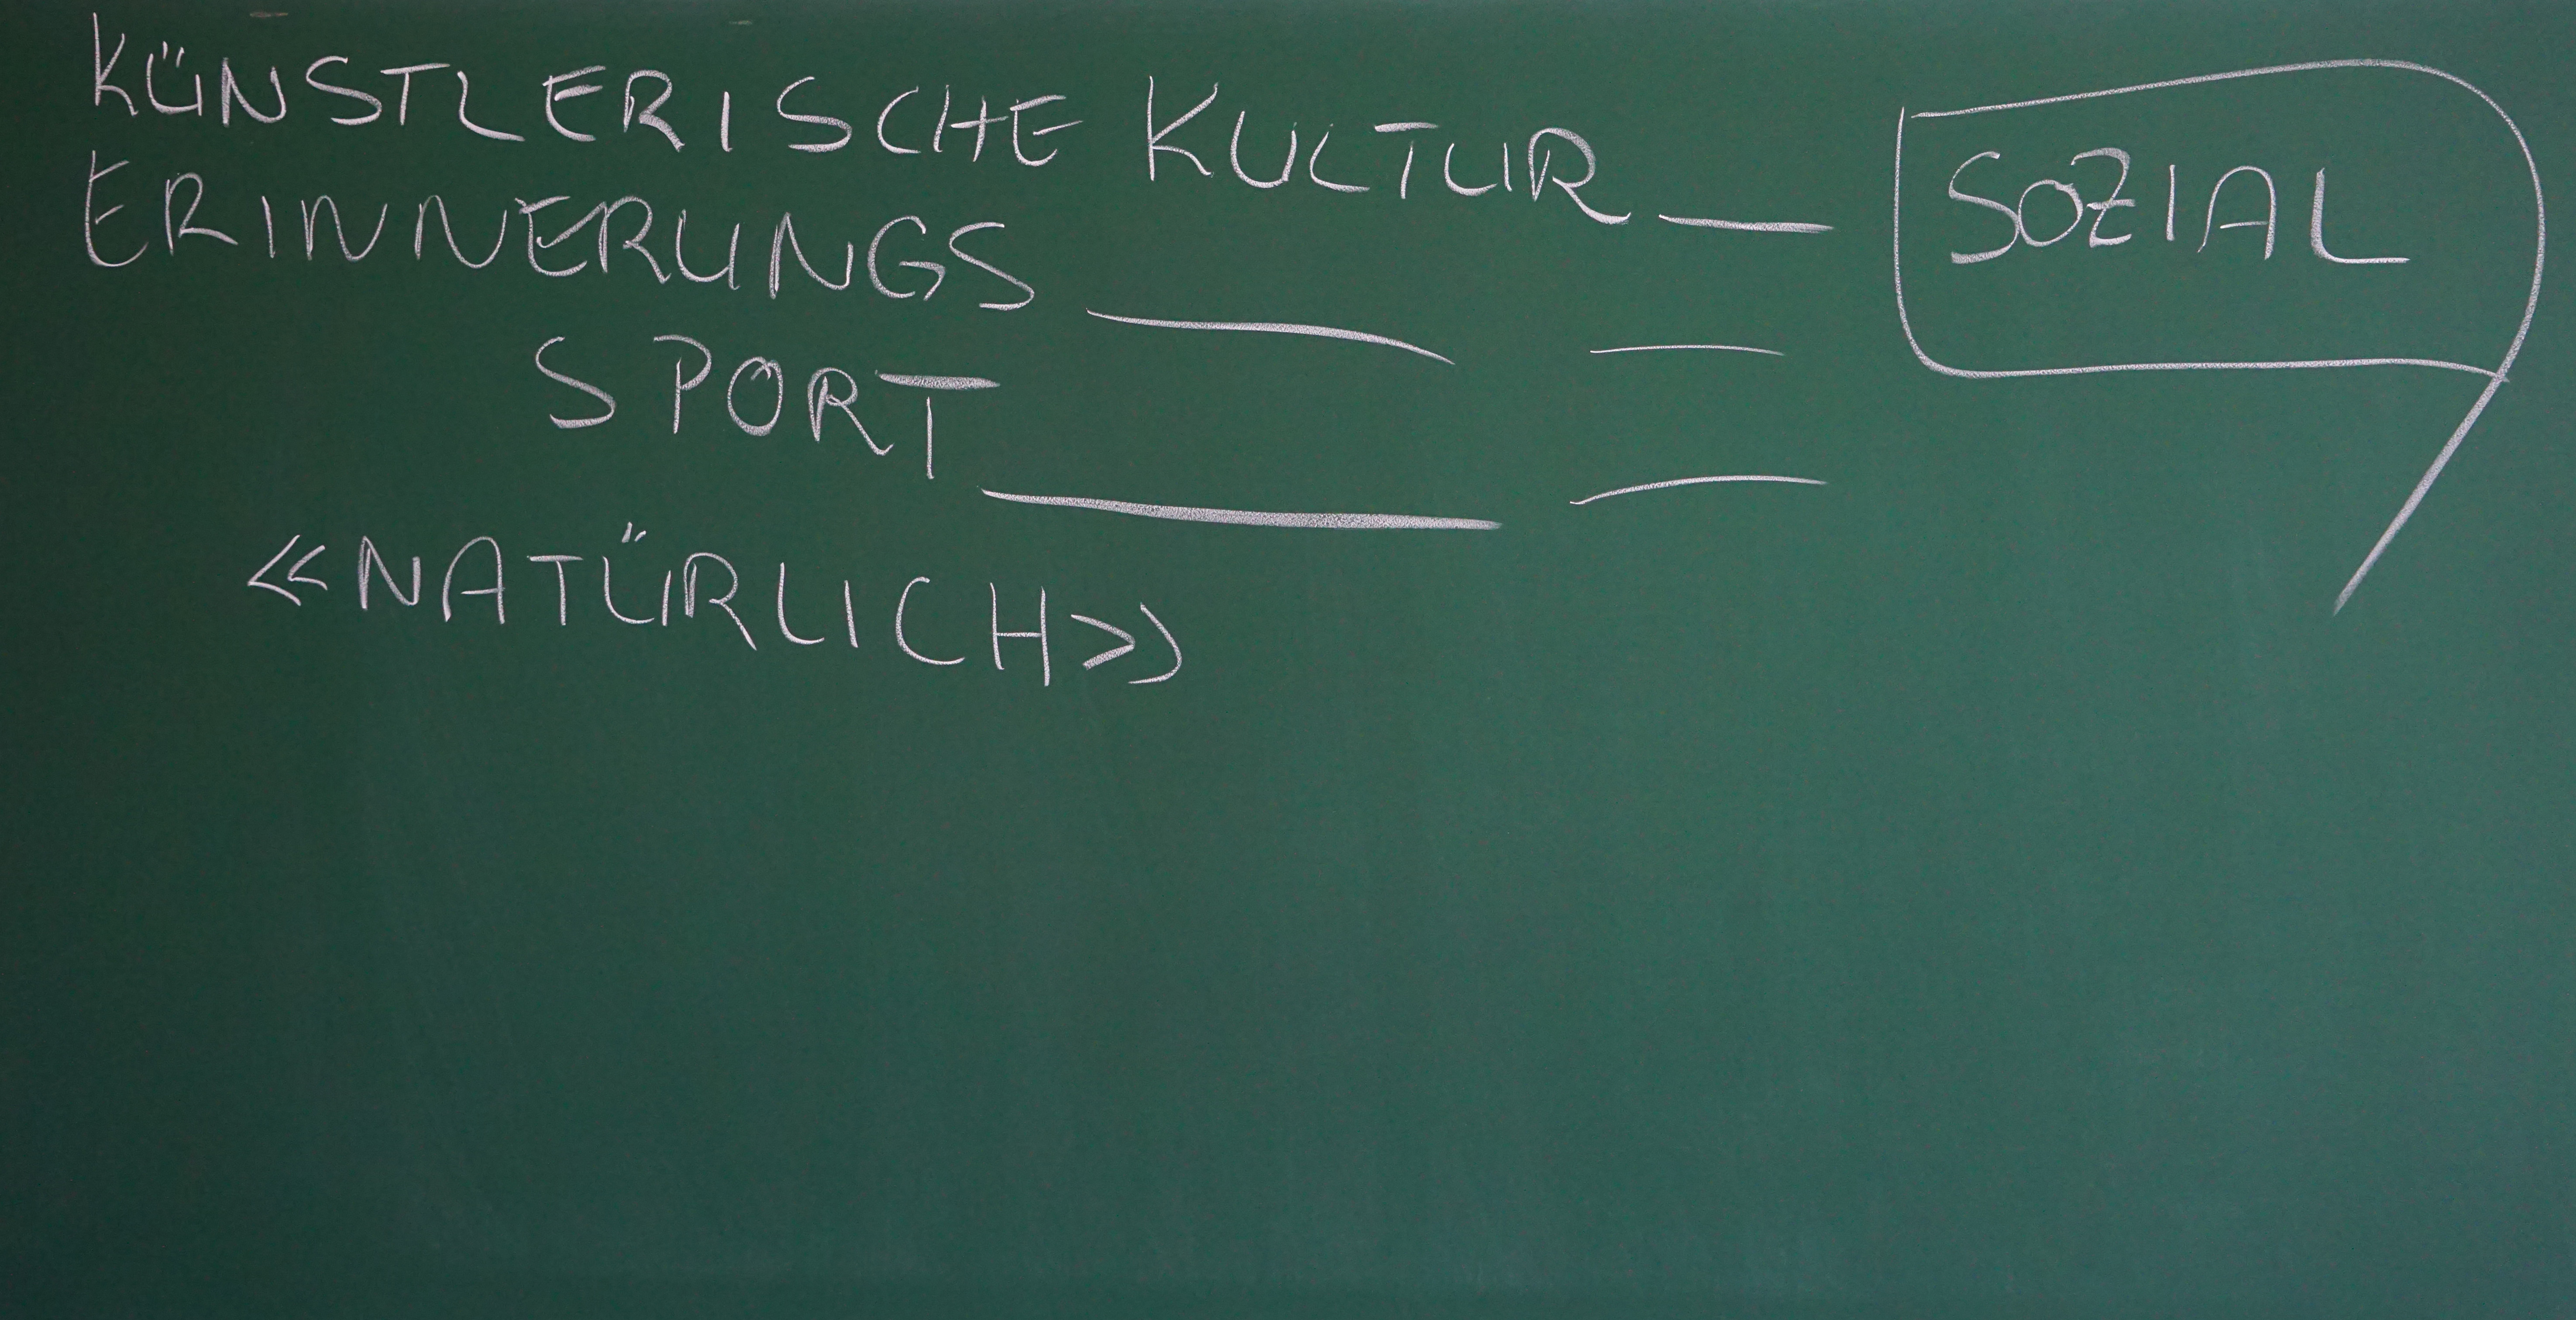 KÜNSTLERISCHE KULTUR — SOZIAL
ERINNERUNGS
SPORT
«NATÜRLICH»